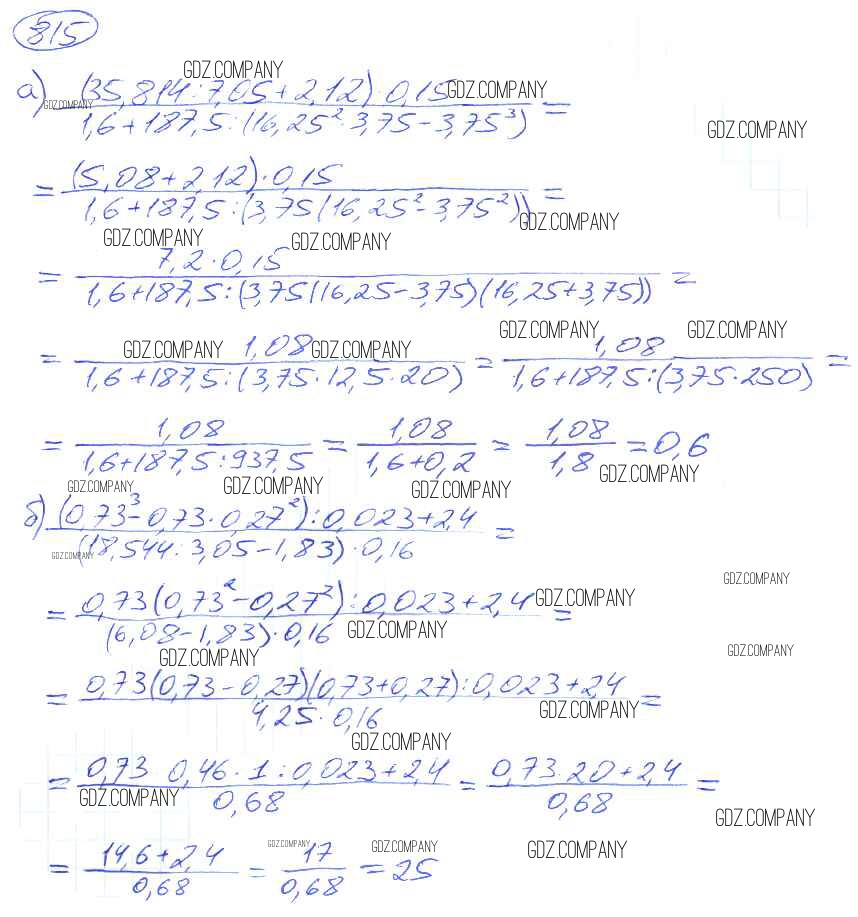 815
GDZ.COMPANY
а) (35,814:7,05+2,12)·0,15 GDZ.COMPANY
GDZ.COMPANY
1,6+187,5:(16,25²·3,75-3,75³) =
GDZ.COMPANY
= (5,08+2,12)·0,15
1,6+187,5:(3,75(16,25²-3,75²)) =
GDZ.COMPANY
GDZ.COMPANY GDZ.COMPANY
= 7,2·0,15
1,6+187,5:(3,75(16,25-3,75)(16,25+3,75)) =
GDZ.COMPANY GDZ.COMPANY
= GDZ.COMPANY 1,08 GDZ.COMPANY = 1,08 =
1,6+187,5:(3,75·12,5·20) 1,6+187,5:(3,75·250)
= 1,08 = 1,08 = 1,08 = 0,6
1,6+187,5:937,5 1,6+0,2 1,8
GDZ.COMPANY GDZ.COMPANY GDZ.COMPANY GDZ.COMPANY
б) (0,73³-0,73·0,27²):0,023+2,4 =
GDZ.COMPANY
(18,544:3,05-1,83)·0,16
GDZ.COMPANY
= 0,73(0,73²-0,27²):0,023+2,4 GDZ.COMPANY =
(6,08-1,83)·0,16 GDZ.COMPANY
GDZ.COMPANY GDZ.COMPANY
= 0,73(0,73-0,27)(0,73+0,27):0,023+2,4 =
4,25·0,16 GDZ.COMPANY
GDZ.COMPANY
= 0,73 0,46·1:0,023+2,4 = 0,73·20+2,4 =
GDZ.COMPANY 0,68 0,68 GDZ.COMPANY
= 14,6+2,4 = 17 = 25
0,68 0,68
GDZ.COMPANY GDZ.COMPANY GDZ.COMPANY